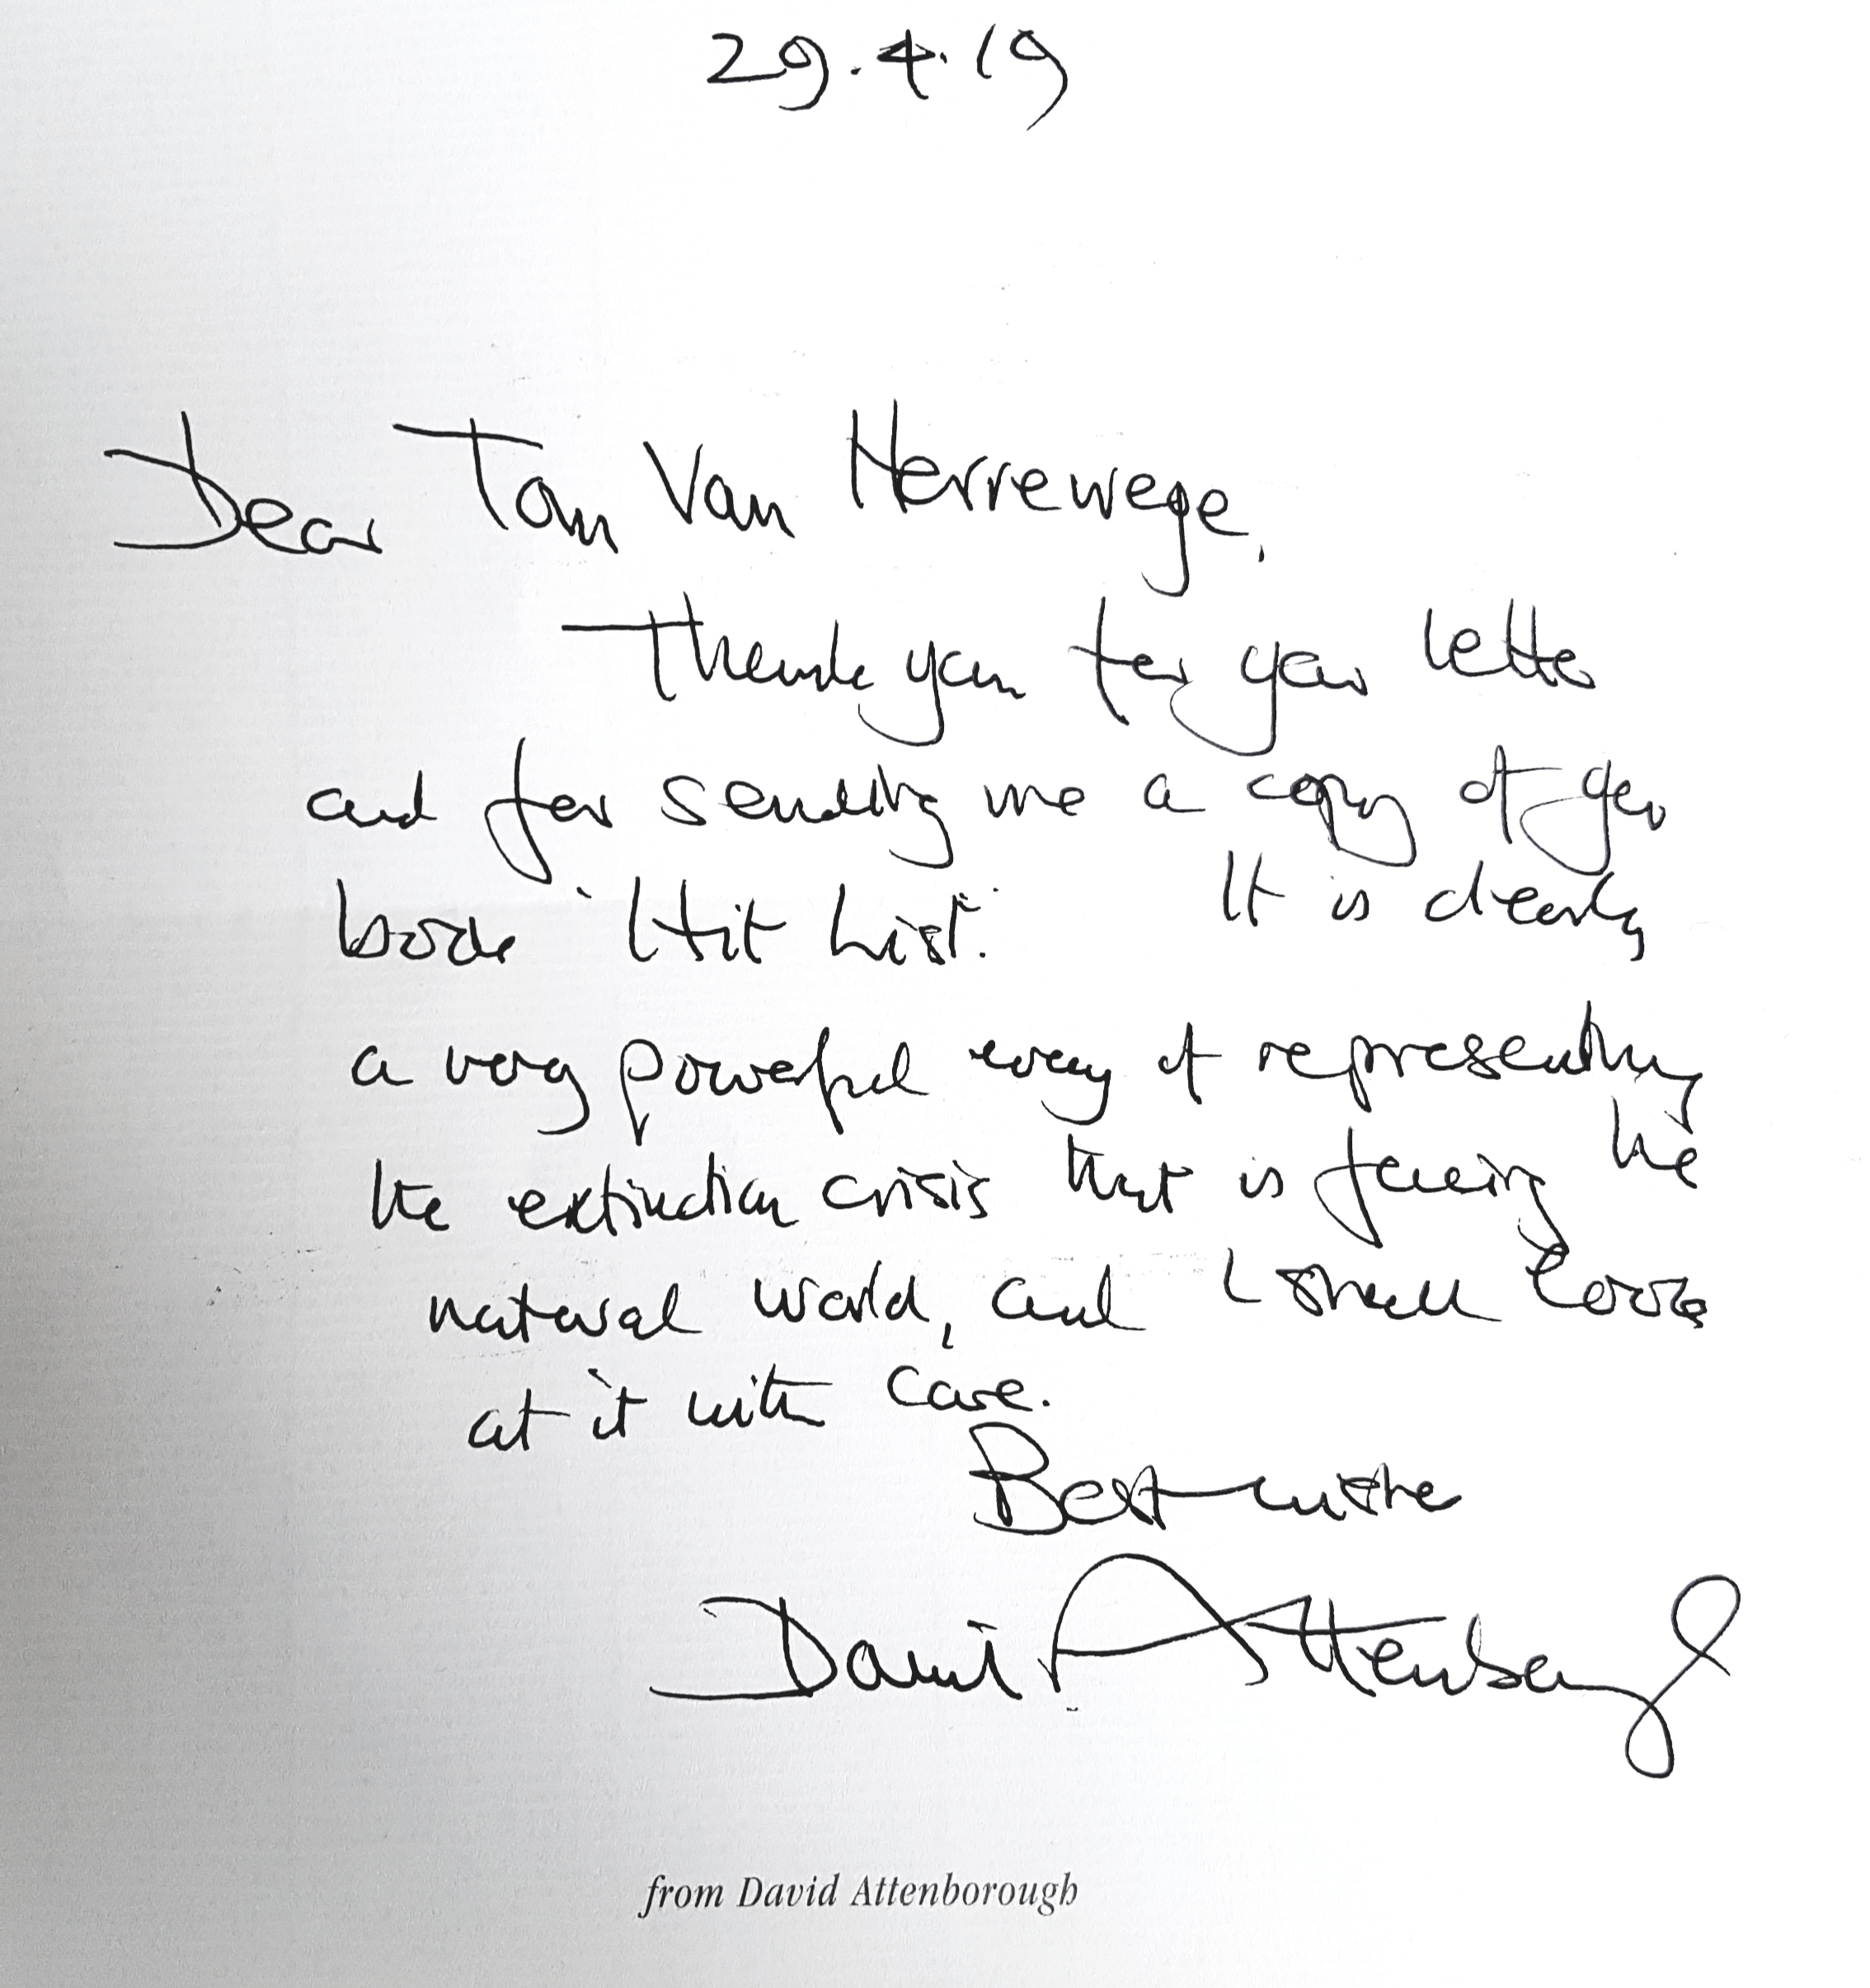 29.4.19
Dear Tom Van Herrewege,
Thank you for your letter
and for sending me a copy of your
book 'Hit List'. It is clearly
a very powerful way of representing
the extinction crisis that is facing the
natural world, and I shall look
at it with care.
Best wishes
David Attenborough
from David Attenborough